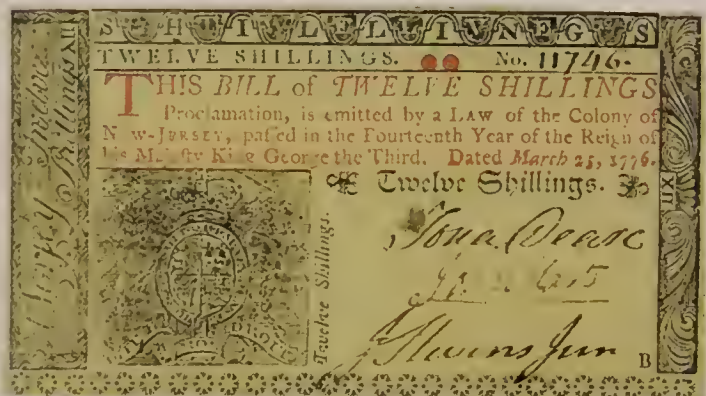 SHILLINGS
TWELVE SHILLINGS. No. 11746.
THIS BILL of TWELVE SHILLINGS
Proclamation, is emitted by a LAW of the Colony of
NEW-JERSEY, paſſed in the Fourteenth Year of the Reign of
his Majeſty King George the Third. Dated March 25, 1776.
Twelve Shillings.
Jona. Deare
J Stevens Jun
B
Twelve Shillings.
XII
Jerſey Twelve
Shillings XII